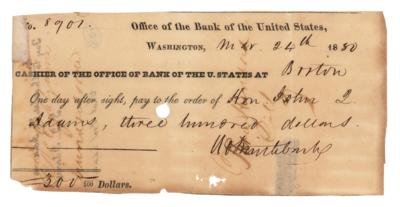 No. 8901. Office of the Bank of the United States,
WASHINGTON, Mar 24th 1830
CASHIER OF THE OFFICE OF BANK OF THE U. STATES AT Boston
One day after sight, pay to the order of Hon John Q
Adams, three hundred dollars.
300 100 Dollars.